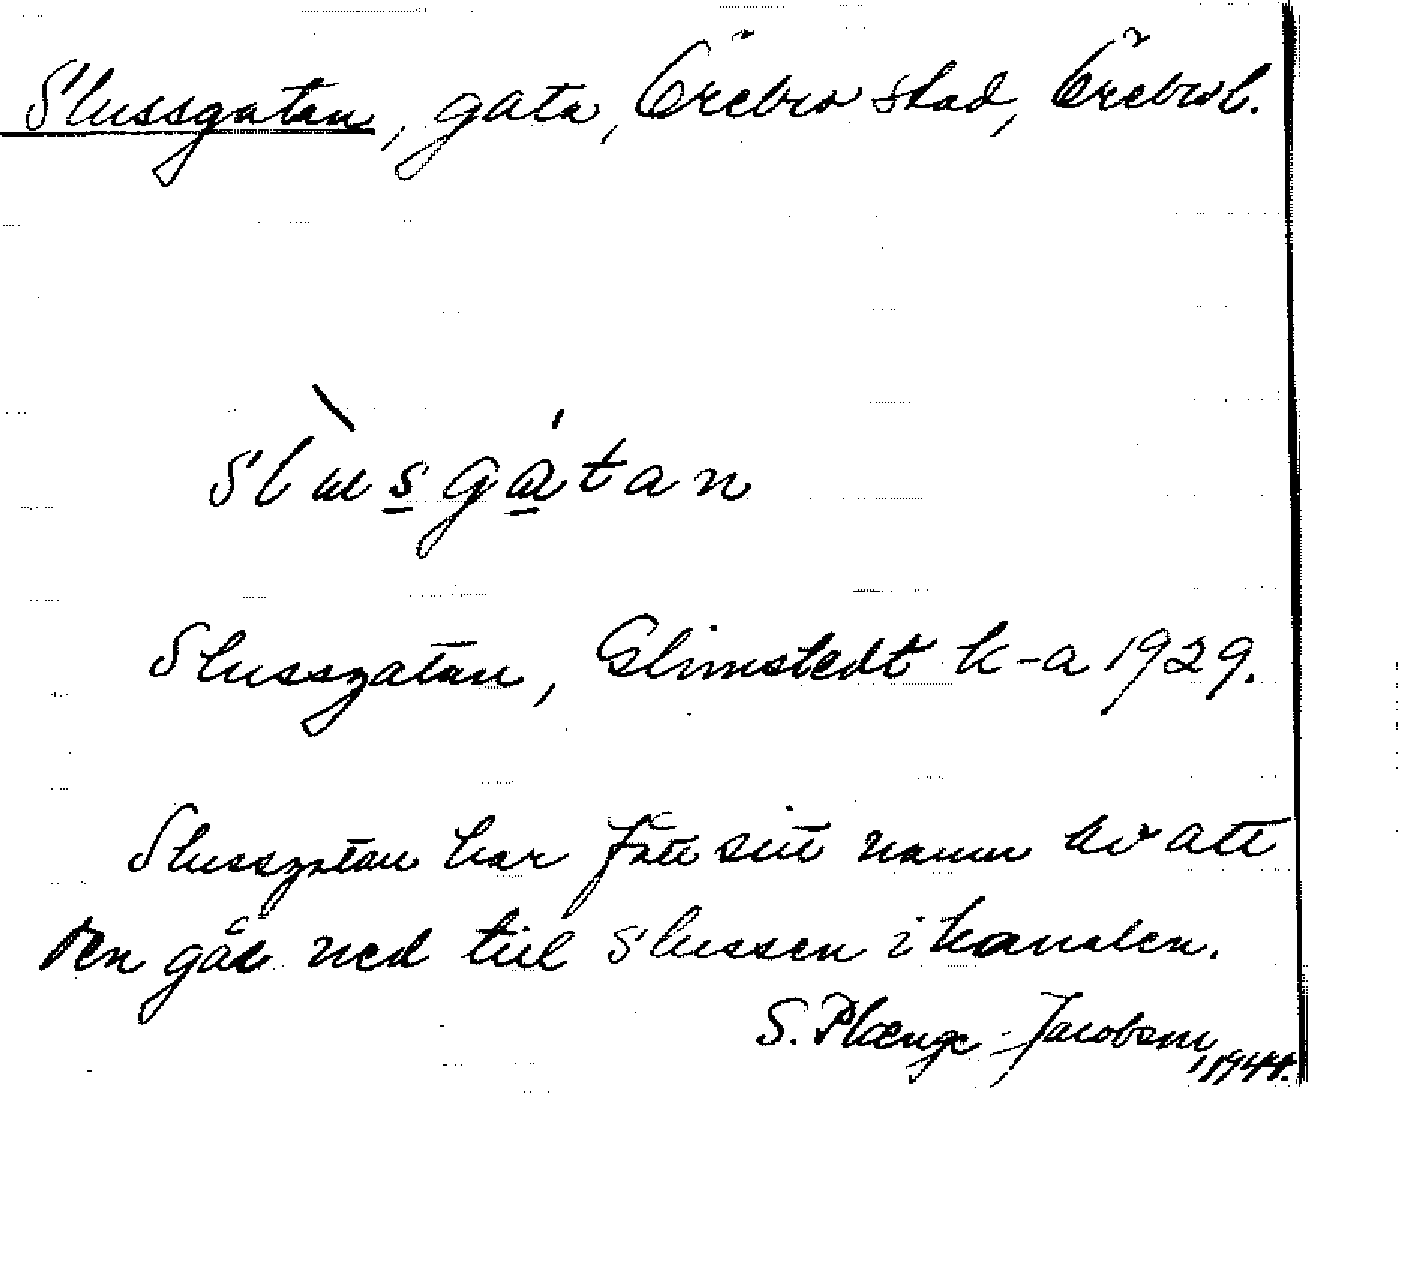 Slussgatan, gata, Örebro stad, Örebro l.
Slusgatan
Slussgatan, Glimstedt k-a 1929.
Slussgatan har fått sitt namn av att
den går ned till slussen i kanalen.
S. Plænge-Jacobson, 1944.